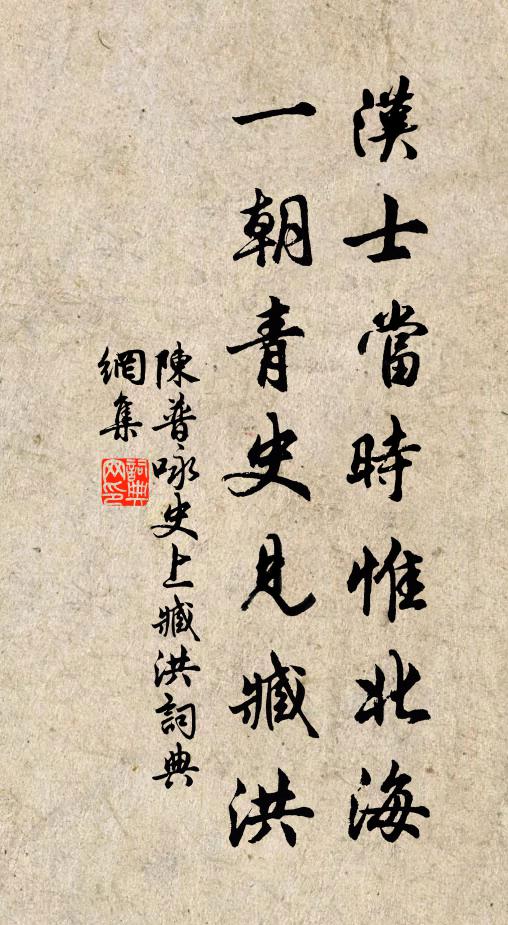 漢士當時惟北海
一朝青史見臧洪
陳普咏史上臧洪詞典
網集
詞典网印